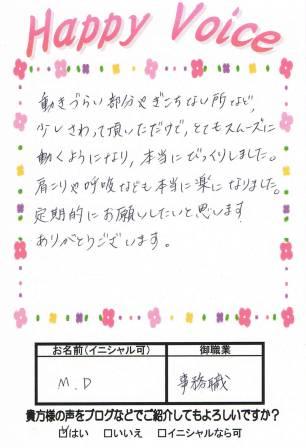 Happy Voice
動きづらい部分やぎこちない所など、
少しさわって頂いただけで、とてもスムーズに
動くようになり、本当にびっくりしました。
肩こりや呼吸なども本当に楽になりました。
定期的にお願いしたいと思います
ありがとうございます。
お名前(イニシャル可) 御職業
M.D 事務職
貴方様の声をブログなどでご紹介してもよろしいですか？
☑はい □いいえ □イニシャルなら可